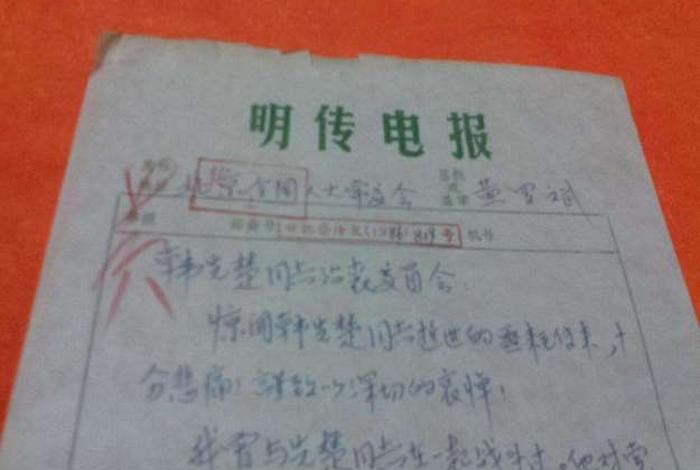 明传电报
北京全国人大常委会
(1986)819号
韩先楚同志治丧委员会:
惊闻韩先楚同志逝世的噩耗传来,十
分悲痛!谨致以深切的哀悼!
我曾与先楚同志在一起战斗过,他对党